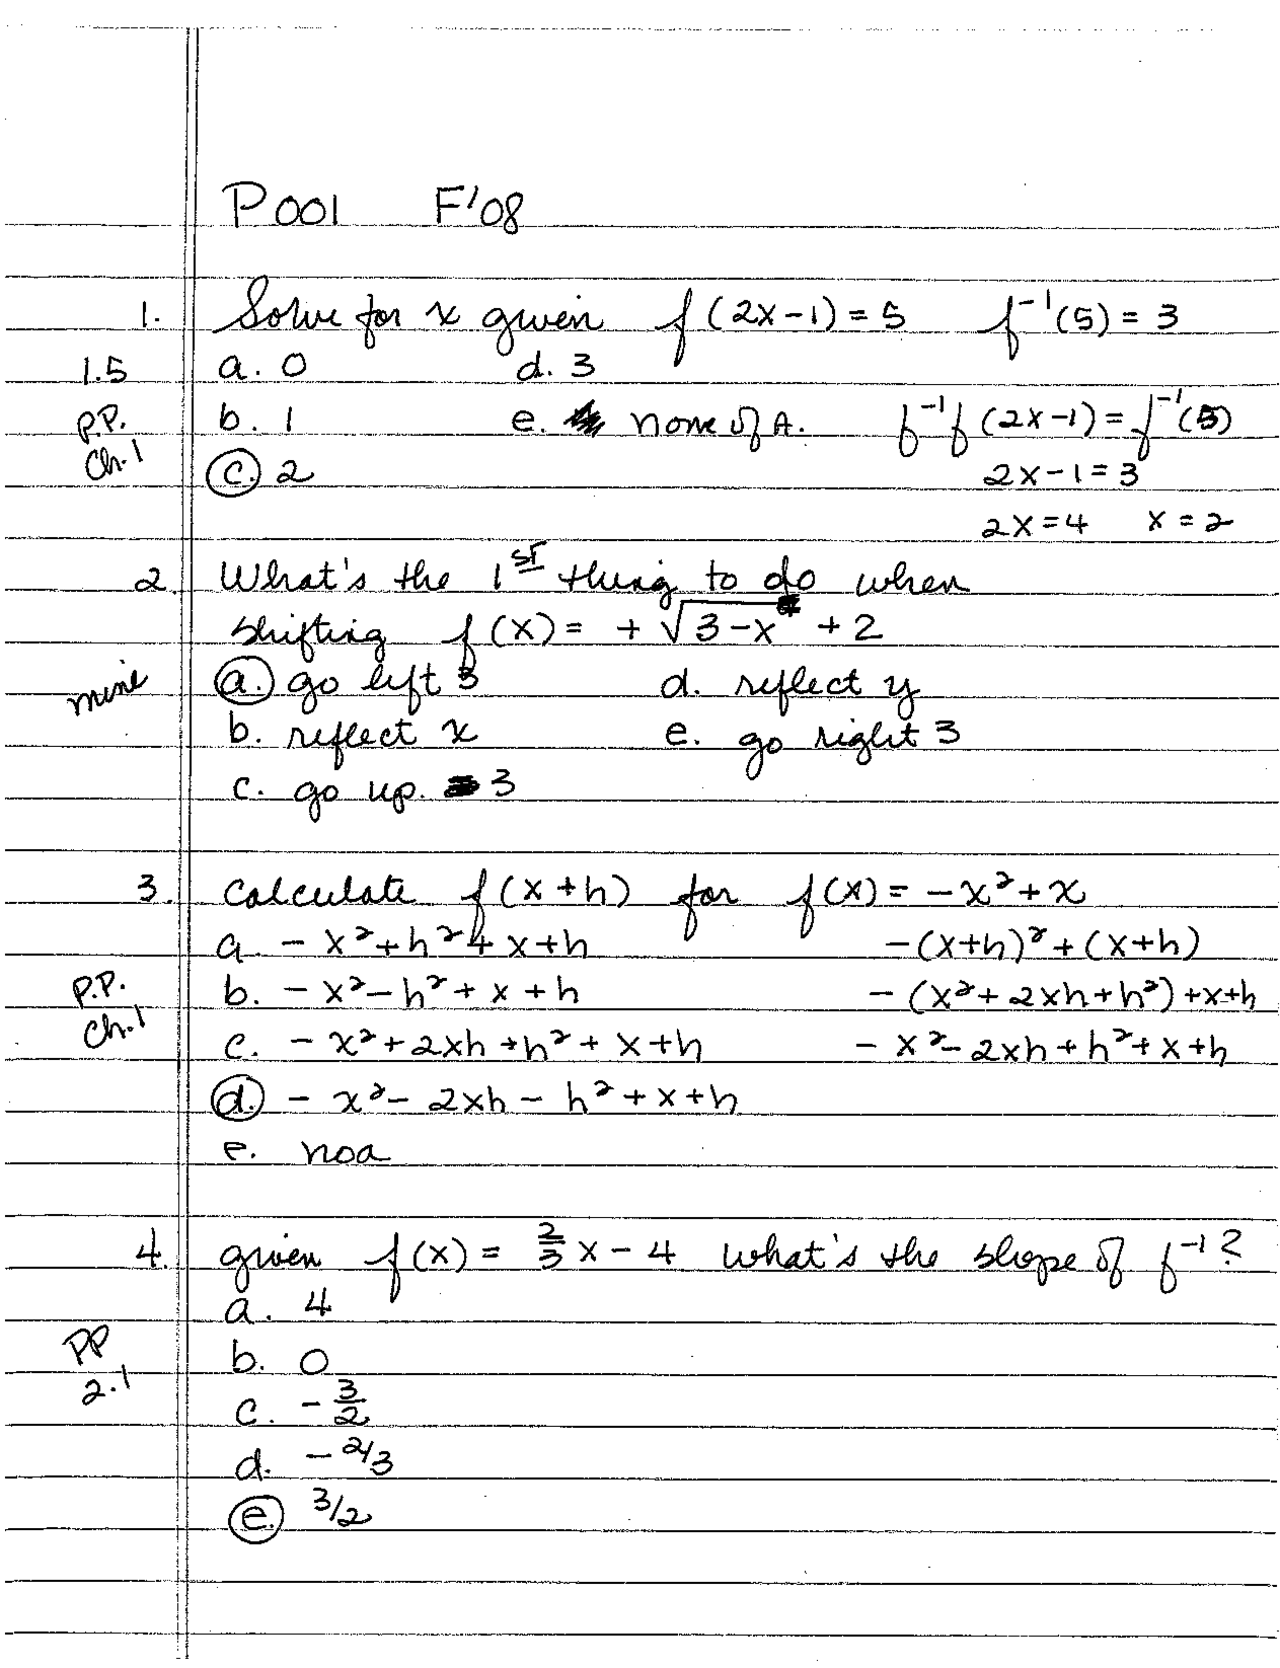 P001 F'08
1. Solve for x given f(2x-1) = 5 f⁻¹(5) = 3
1.5 a. 0 d. 3
P.P. Ch.1 b. 1 e. none of A. f⁻¹f(2x-1) = f⁻¹(5)
c. 2 2x-1 = 3
2x = 4 x = 2
2. What's the 1st thing to do when
shifting f(x) = + √3-x + 2
mine a. go left 3 d. reflect y
b. reflect x e. go right 3
c. go up 3
3. Calculate f(x+h) for f(x) = -x² + x
a. -x² + h² + x + h -(x+h)² + (x+h)
P.P. Ch.1 b. -x² - h² + x + h -(x² + 2xh + h²) + x + h
c. -x² + 2xh + h² + x + h -x² - 2xh + h² + x + h
d. -x² - 2xh - h² + x + h
e. noa
4. given f(x) = 2/3 x - 4 what's the slope of f⁻¹?
a. 4
PP b. 0
2.1 c. -3/2
d. -2/3
e. 3/2